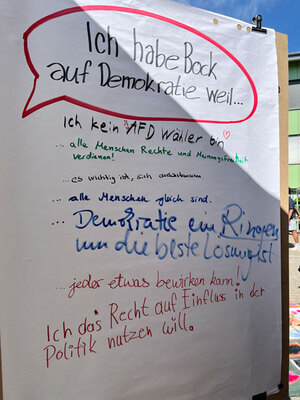 Ich habe Bock
auf Demokratie weil...
Ich kein AFD Wähler bin
... alle Menschen Rechte und Meinungsfreiheit
verdienen!
...es wichtig ist, sich
... alle Menschen gleich sind.
... Demokratie ein Ringen
um die beste Lösung ist
...jeder etwas bewirken kann.
Ich das Recht auf Einfluss in der
Politik nutzen will.